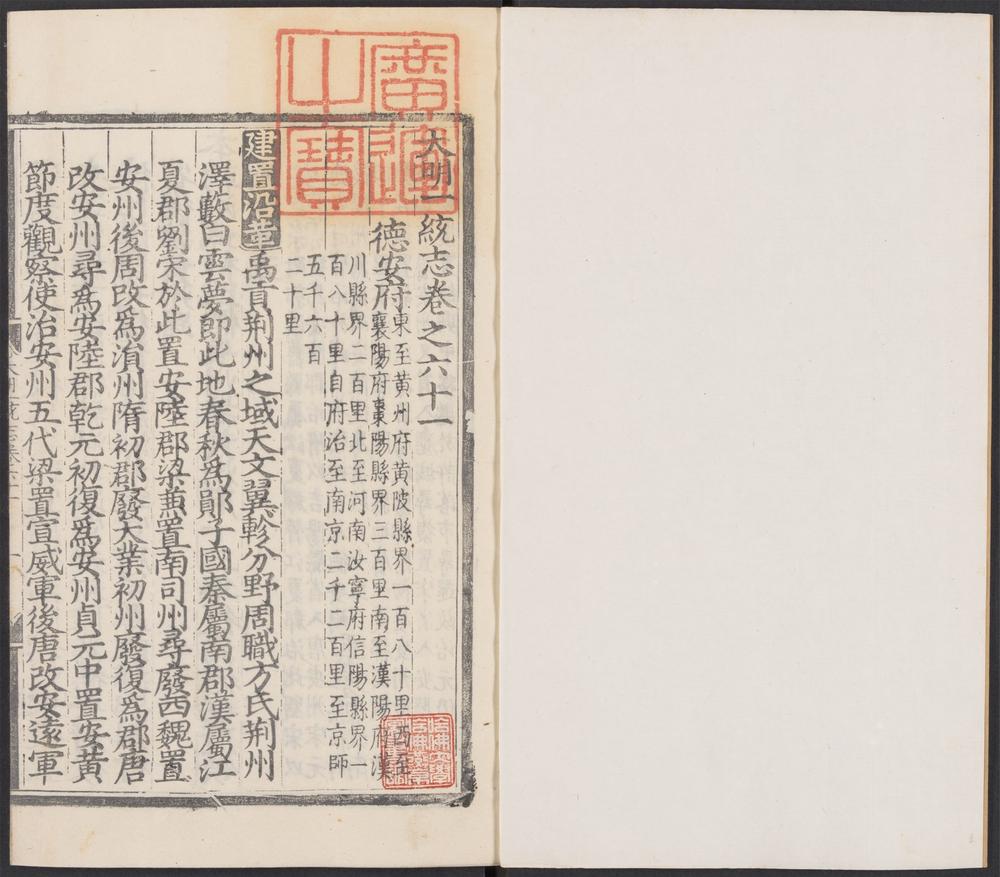 大明一統志卷之六十一
德安府東至黃州府黃陂縣界一百八十里西至
襄陽府棗陽縣界三百里南至漢陽府漢
川縣界二百里北至河南汝寧府信陽縣界一
百八十里自府治至南京二千二百里至京師
五千六百
二十里
建置沿革禹貢荊州之域天文翼軫分野周職方氏荊州
澤藪曰雲夢即此地春秋爲鄖子國秦屬南郡漢屬江
夏郡劉宋於此置安陸郡梁兼置南司州尋廢西魏置
安州後周改爲溳州隋初郡廢大業初州廢復爲郡唐
改安州尋爲安陸郡乾元初復爲安州貞元中置安黃
節度觀察使治安州五代梁置宣威軍後唐改安遠軍
廣運之寶